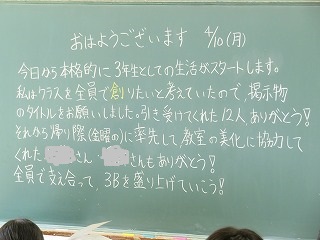 おはようございます 4/10(月)
今日から本格的に3年生としての生活がスタートします。
私はクラスを全員で創りたいと考えていたので、掲示物
のタイトルをお願いしました。引き受けてくれた12人ありがとう!
それから帰り際(金曜の)に率先して、教室の美化に協力して
くれた さん さんもありがとう!
全員で支え合って、3Bを盛り上げていこう!